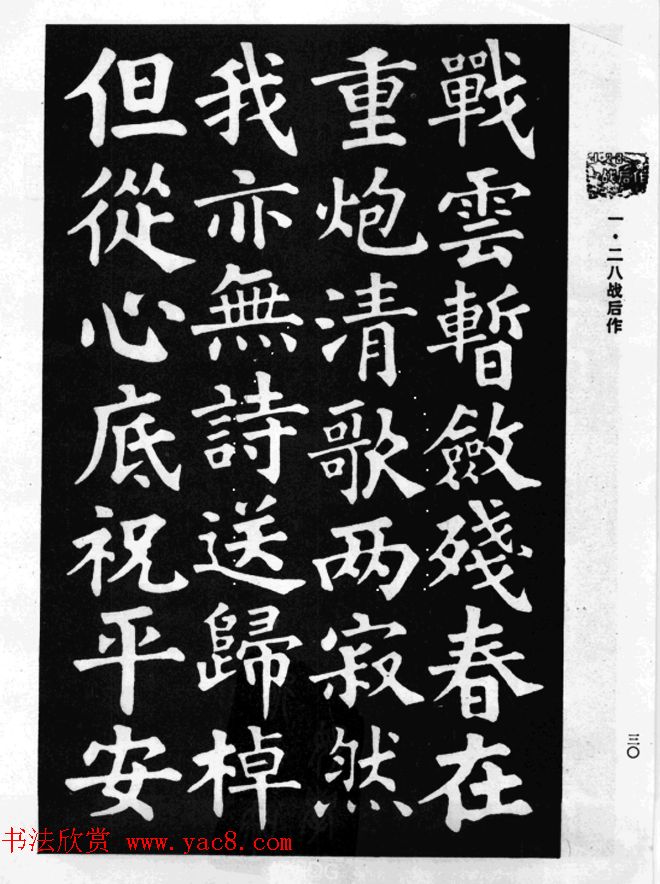 一·二八战后作
三〇
戰雲暫斂殘春在
重炮清歌两寂然
我亦無詩送歸棹
但從心底祝平安
书法欣赏 www.yac8.com